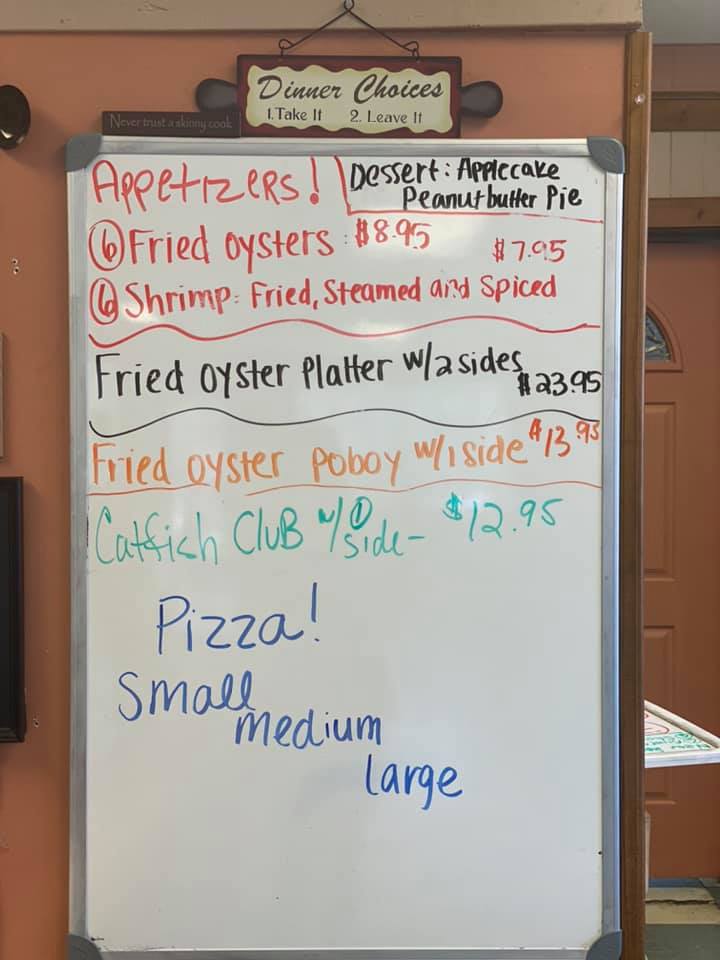 Dinner Choices
1. Take It 2. Leave It
Never trust a skinny cook
Appetizers!
Dessert: Applecake
Peanutbutter Pie
⑥ Fried oysters: $8.95
$7.95
⑥ Shrimp: Fried, Steamed and Spiced
Fried oyster Platter w/2 sides
$23.95
Fried oyster poboy w/1 side $13.95
Catfish Club w/① side- $12.95
Pizza!
Small
medium
large